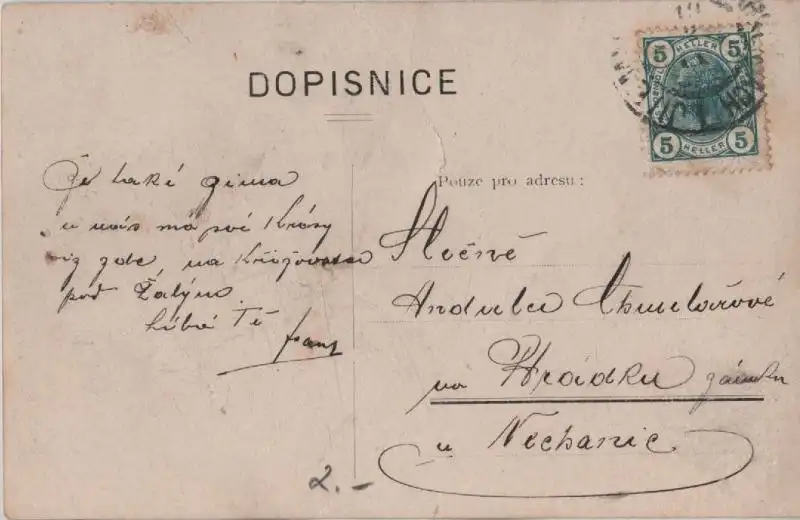 DOPISNICE
5 HELLER 5
5 HELLER 5
Pouze pro adresu:
Je také zima
u nás má své Krásy
viz zde na Křižovatce
pod Žalýmo.
Líbá Tě
Franz
Slečně
Andulce Chmelařové
na Hrádku zámku
u Nechanic
2.-